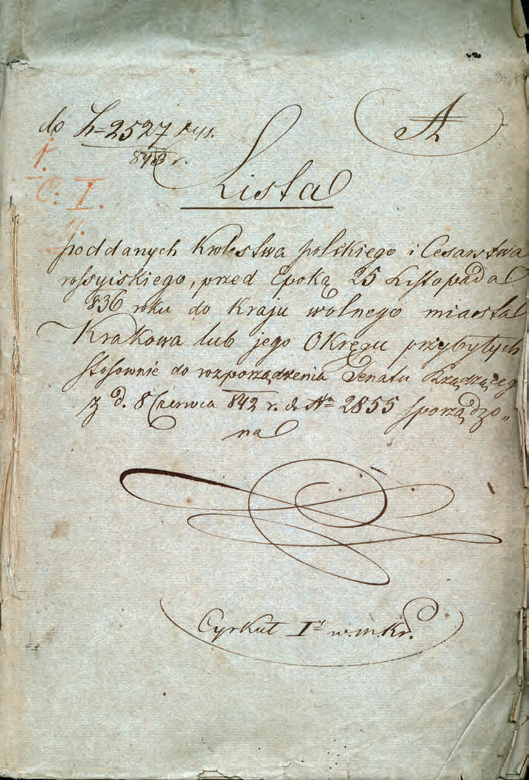 do L=2527
843 r.
A
1.
C. I.
Lista
poddanych Krolestwa polskiego i Cesarstwa
rossyiskiego, przed Epoką 25 Listopada
836 roku do Kraju wolnego miasta
Krakowa lub jego Okręgu przybyłych
stosownie do rozporządzenia Senatu Rządzącego
z d. 8 Czerwca 842 r. do Nr 2855 sporządzo„
na
Cyrkuł Iy w. m. Kr.